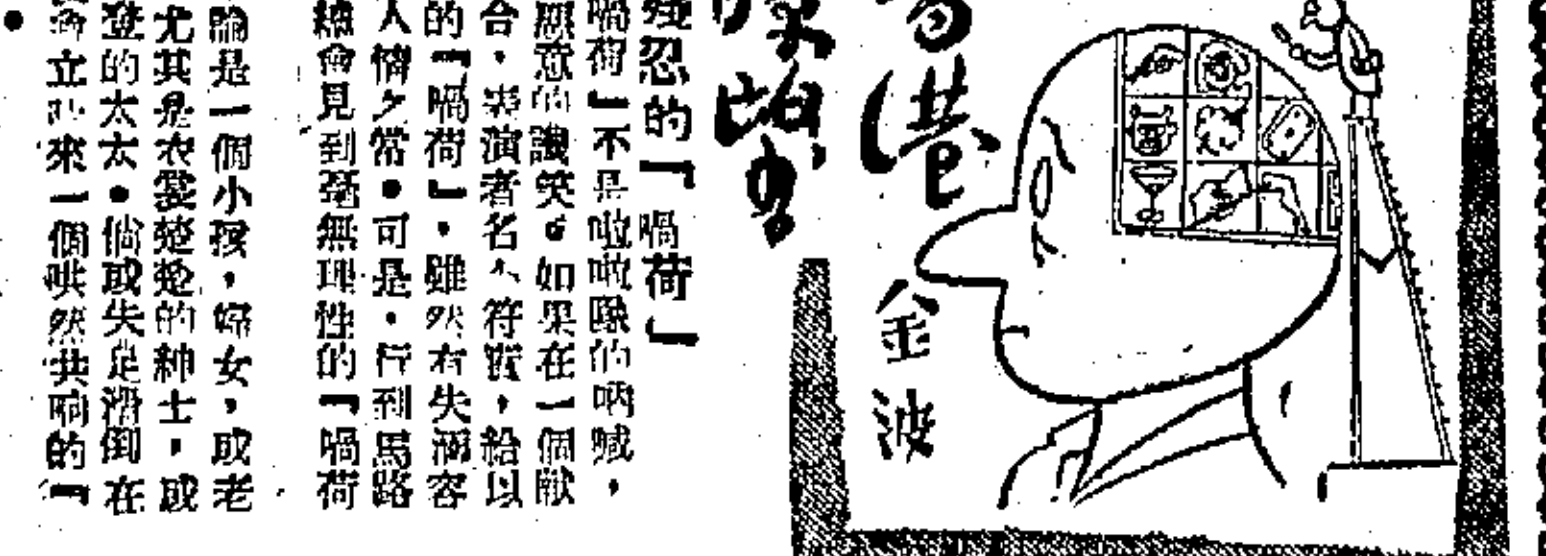 港
金波
殘忍的「喎荷」
喎荷」不是啦啦隊的吶喊，
願意的譏笑。如果在一個獻
合，表演者名不符實，給以
的「喎荷」，雖然有失涵容
人情之常。可是，行到馬路
總會見到毫無理性的「喎荷
論是一個小孩，婦女，或老
尤其是衣裳楚楚的紳士，或
登的太太。倘或失足滑倒在
立來一個哄然共响的「